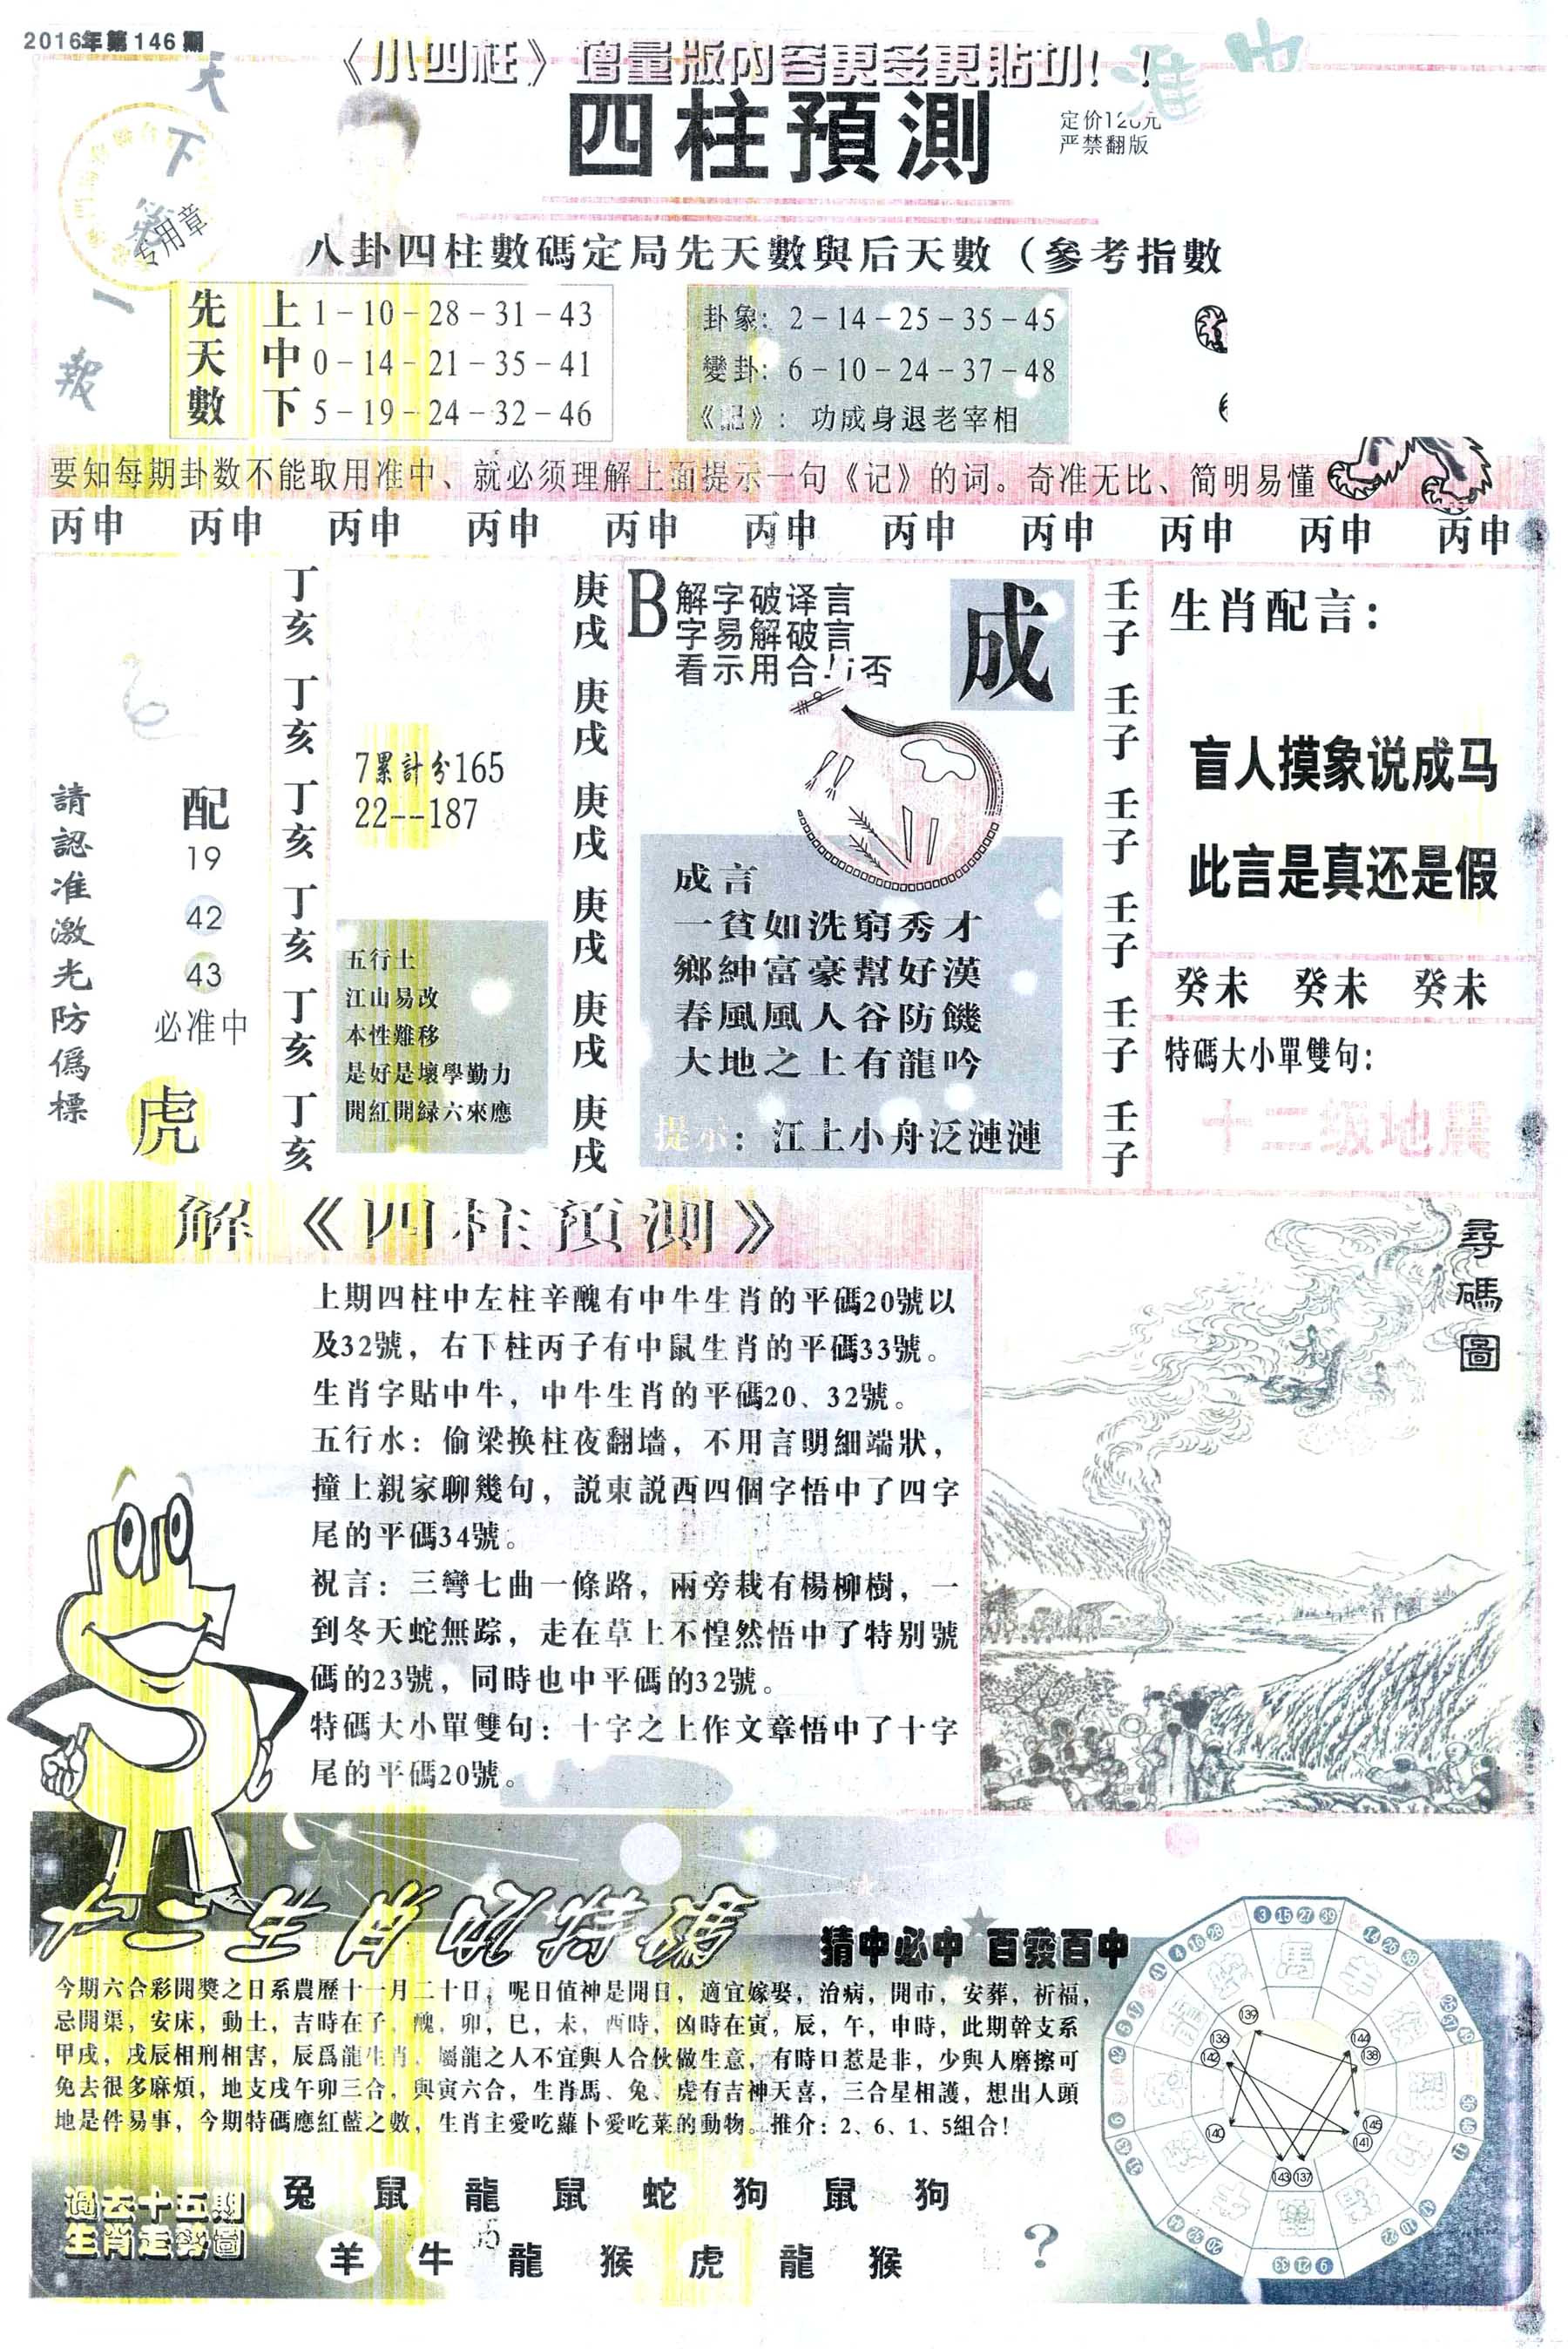 2016年第146期
《小四柱》增量版內容更多更貼切！！
准中
四柱預測
定价120元
严禁翻版
天下第一報
专用章
八卦四柱數碼定局先天數與后天數（參考指數
先天數
上 1－10－28－31－43
中 0－14－21－35－41
下 5－19－24－32－46
卦象：2－14－25－35－45
變卦：6－10－24－37－48
《記》：功成身退老宰相
要知每期卦数不能取用准中、就必须理解上面提示一句《记》的词。奇准无比、简明易懂
丙申 丙申 丙申 丙申 丙申 丙申 丙申 丙申 丙申 丙申 丙申
請認准激光防僞標
配
19
42
43
必准中
虎
丁亥 丁亥 丁亥 丁亥 丁亥 丁亥
7累計分165
22--187
五行土
江山易改
本性難移
是好是壞學勤力
開紅開緑六來應
庚戌 庚戌 庚戌 庚戌 庚戌 庚戌
B
解字破译言
字易解破言
看示用合与否
成
成言
一貧如洗窮秀才
鄉紳富豪幫好漢
春風風人谷防饑
大地之上有龍吟
提示：江上小舟泛漣漣
壬子 壬子 壬子 壬子 壬子 壬子
生肖配言：
盲人摸象说成马
此言是真还是假
癸未 癸未 癸未
特碼大小單雙句：
十二级地震
解《四柱預測》
上期四柱中左柱辛醜有中牛生肖的平碼20號以
及32號，右下柱丙子有中鼠生肖的平碼33號。
生肖字貼中牛，中牛生肖的平碼20、32號。
五行水：偷梁换柱夜翻墙，不用言明細端狀，
撞上親家聊幾句，説東説西四個字悟中了四字
尾的平碼34號。
祝言：三彎七曲一條路，兩旁栽有楊柳樹，一
到冬天蛇無踪，走在草上不惶然悟中了特别號
碼的23號，同時也中平碼的32號。
特碼大小單雙句：十字之上作文章悟中了十字
尾的平碼20號。
尋碼圖
十二生肖配特碼
猜中必中 百發百中
今期六合彩開獎之日系農歷十一月二十日，呢日值神是開日，適宜嫁娶，治病，開市，安葬，祈福，
忌開渠，安床，動土，吉時在子，醜，卯，巳，未，酉時，凶時在寅，辰，午，申時，此期幹支系
甲戌，戌辰相刑相害，辰爲龍生肖，屬龍之人不宜與人合伙做生意，有時口惹是非，少與人磨擦可
免去很多麻煩，地支戌午卯三合，與寅六合，生肖馬、兔、虎有吉神天喜，三合星相護，想出人頭
地是件易事，今期特碼應紅藍之數，生肖主愛吃蘿卜愛吃菜的動物。推介：2、6、1、5組合！
過去十五期
生肖走勢圖
兔 鼠 龍 鼠 蛇 狗 鼠 狗
羊 牛 龍 猴 虎 龍 猴 ？
3 15 27 39
馬
139
136
142
144
138
140
145
141
143 137
9 21 33